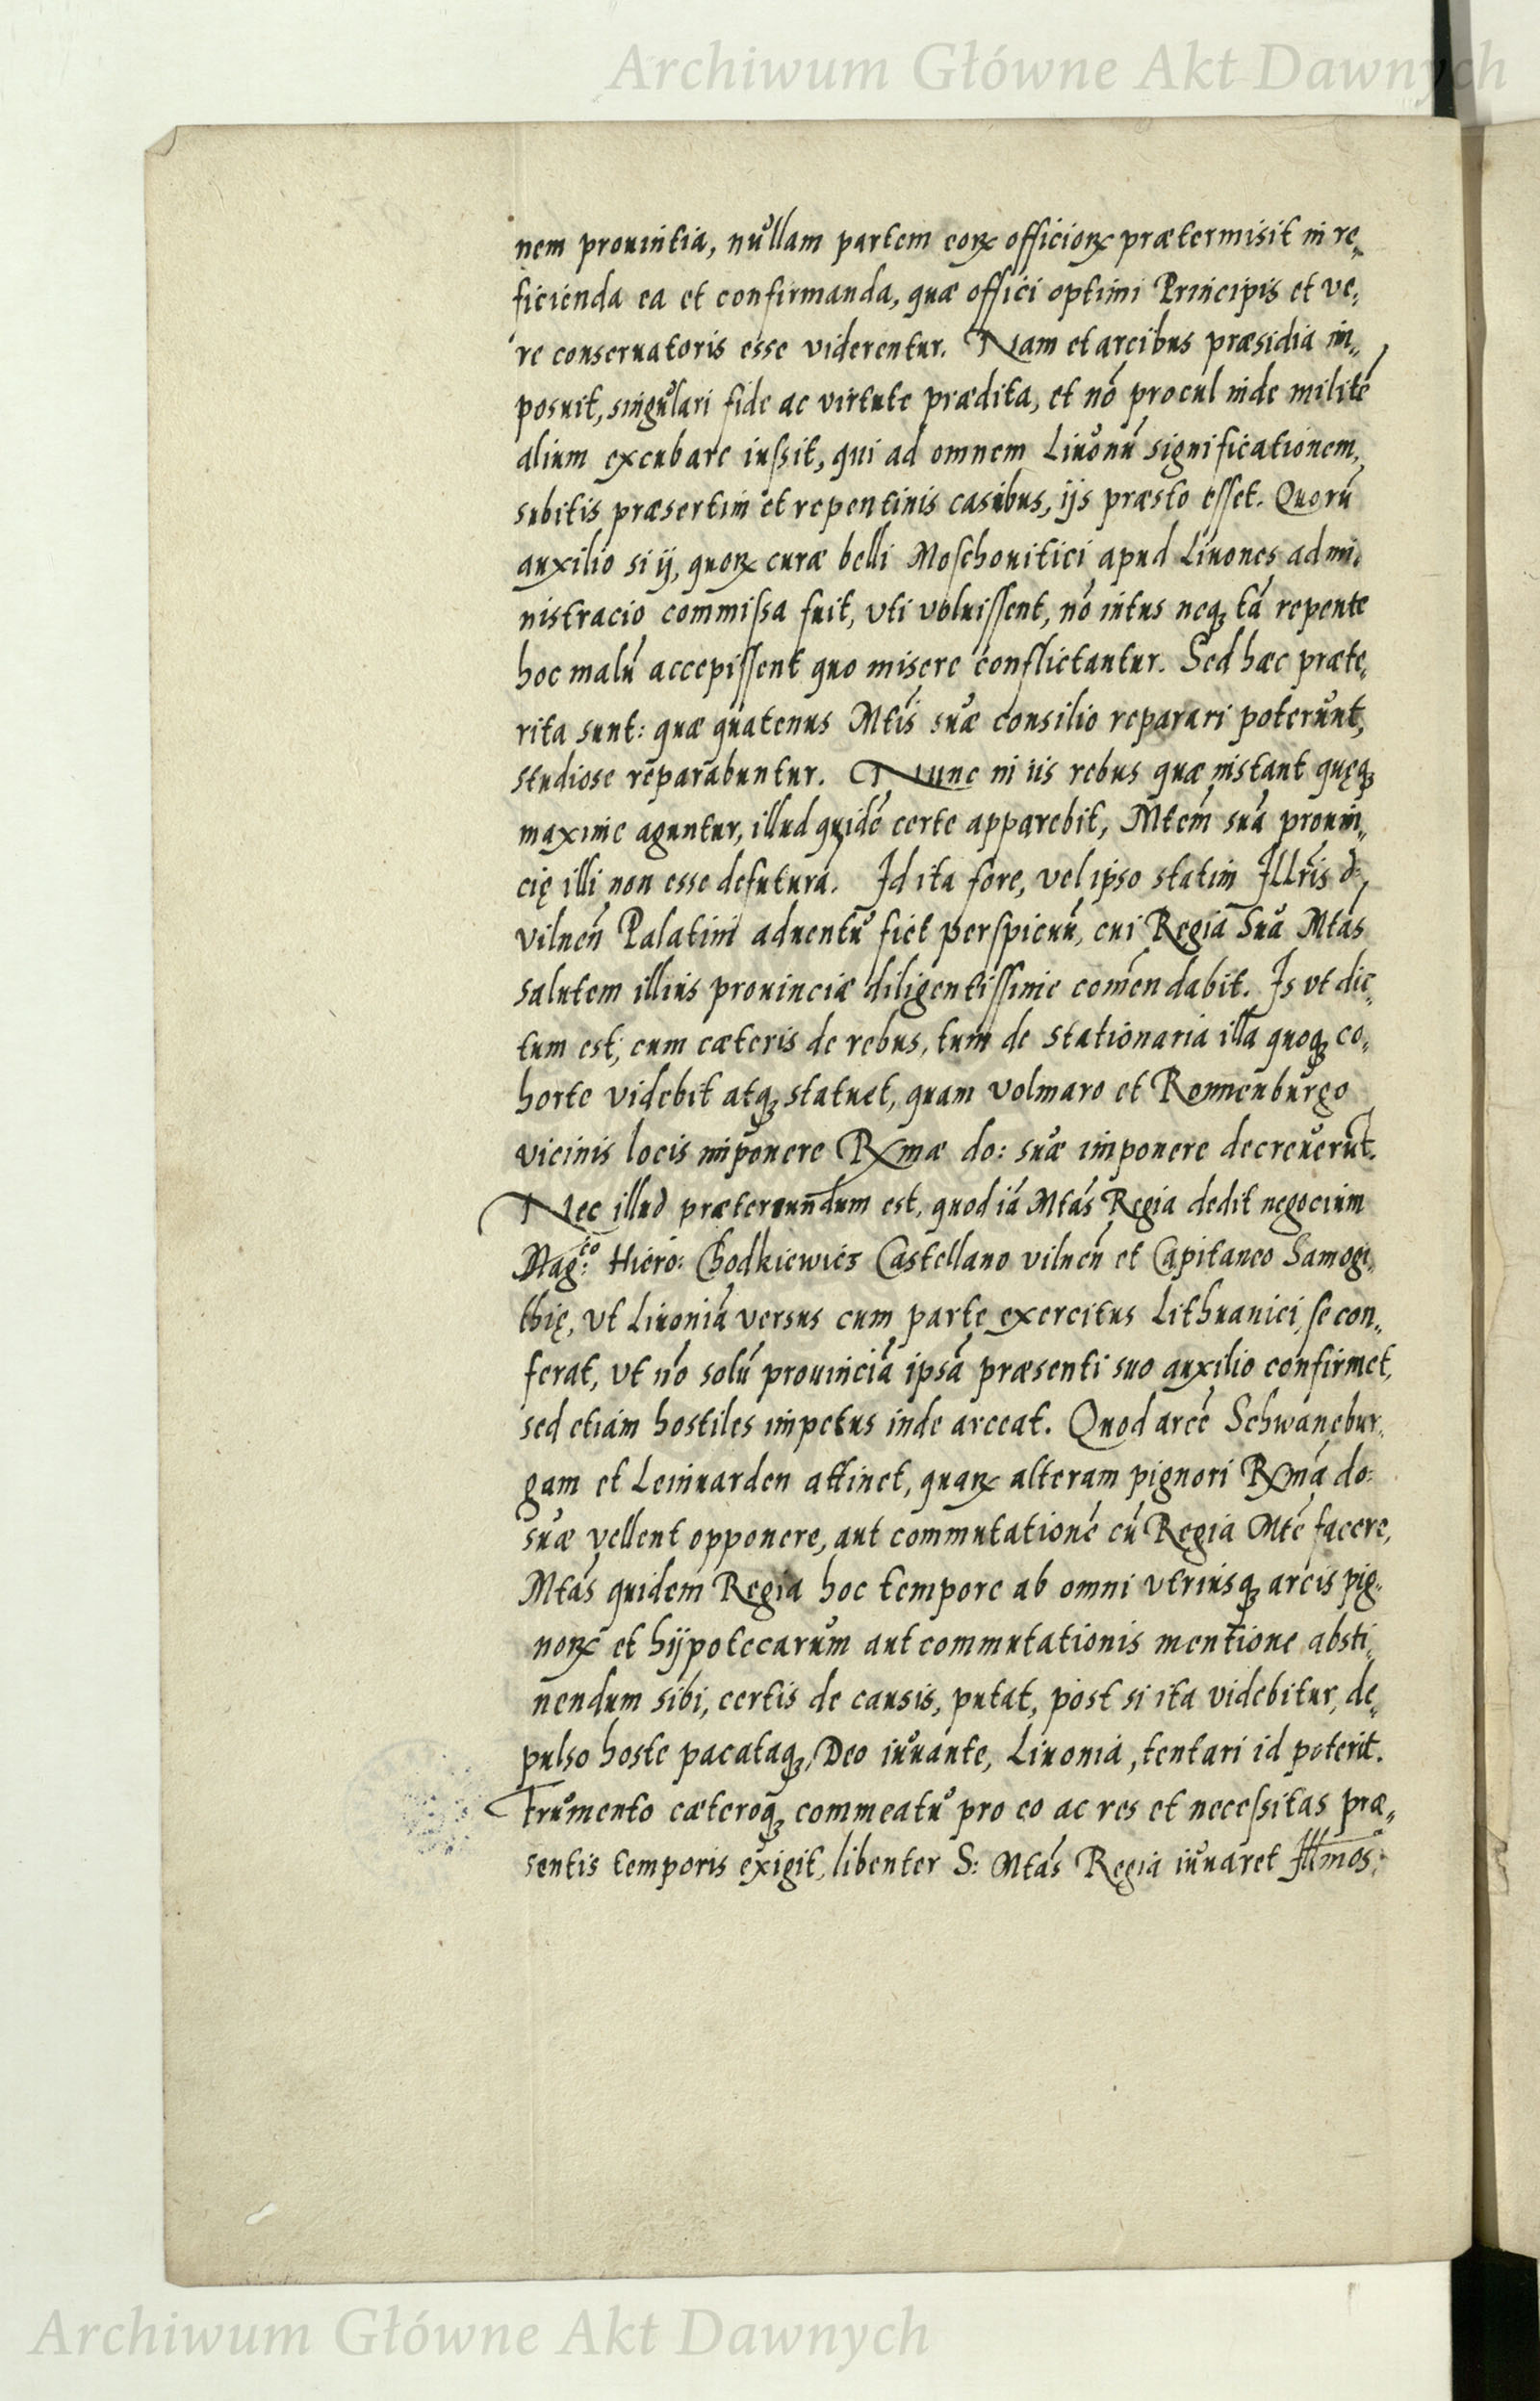 Archiwum Główne Akt Dawnych
nem prouintia, nullam partem eoꝝ officioꝝ prætermisit in re„
ficienda ea et confirmanda, quæ offici optimi Principis et ve„
re conseruatoris esse viderentur. Nam et arcibus præsidia im„
posuit, singulari fide ac virtute prædita, et nõ procul inde militẽ
alium excubare iussit, qui ad omnem Liuonũ significationem,
subitis præsertim et repentinis casibus, ijs præsto esset. Quorũ
auxilio si ij, quoꝝ curæ belli Moschouitici apud Liuones admi„
nistracio commissa fuit, vti voluissent, nõ intus neqꝫ tã repente
hoc malũ accepissent quo misere conflictantur. Sed hæc præte„
rita sunt: quæ quatenus Mtis suæ consilio reparari poterunt,
studiose reparabuntur. Nunc in iis rebus quæ instant quęqꝫ
maxime aguntur, illud quidẽ certe apparebit, Mtem suã prouin„
cię illi non esse defuturã. Id ita fore, vel ipso statim Illris d:
vilneñ Palatini aduentu fiet perspicuũ, cui Regia Sua Mtas
salutem illius prouinciæ diligentissime comẽndabit. Is vt dic„
tum est, cum cæteris de rebus, tum de stationaria illa quoqꝫ co„
horte videbit atqꝫ statuet, quam volmaro et Ronnenburgo
vicinis locis imponere Rxmæ do: suæ imponere decreuerũt.
Nec illud prætereundum est, quod iã Mtas Regia dedit negocium
Mag:to Hiero: Chodkiewicz Castellano vilneñ et Capitaneo Samogi„
thię, vt Liuoniã versus cum parte exercitus Lithuanici se con„
ferat, vt nõ solũ prouinciã ipsã præsenti suo auxilio confirmet,
sed etiam hostiles impetus inde arceat. Quod arcẽ Schwanebur„
gam et Leinuarden attinet, quaꝝ alteram pignori Rxma do:
suæ vellent opponere, aut commutationẽ cũ Regia Mte facere,
Mtas quidem Regia hoc tempore ab omni vtriusqꝫ arcis pig„
noꝝ et hypotecarum aut commutationis mentione absti„
nendum sibi, certis de causis, putat, post si ita videbitur, de„
pulso hoste pacataqꝫ, Deo iuuante, Liuonia, tentari id poterit.
Frumento cæteroqꝫ commeatu pro eo ac res et necessitas præ„
sentis temporis exigit, libenter S: Mtas Regia iuuaret Illmos,
Archiwum Główne Akt Dawnych